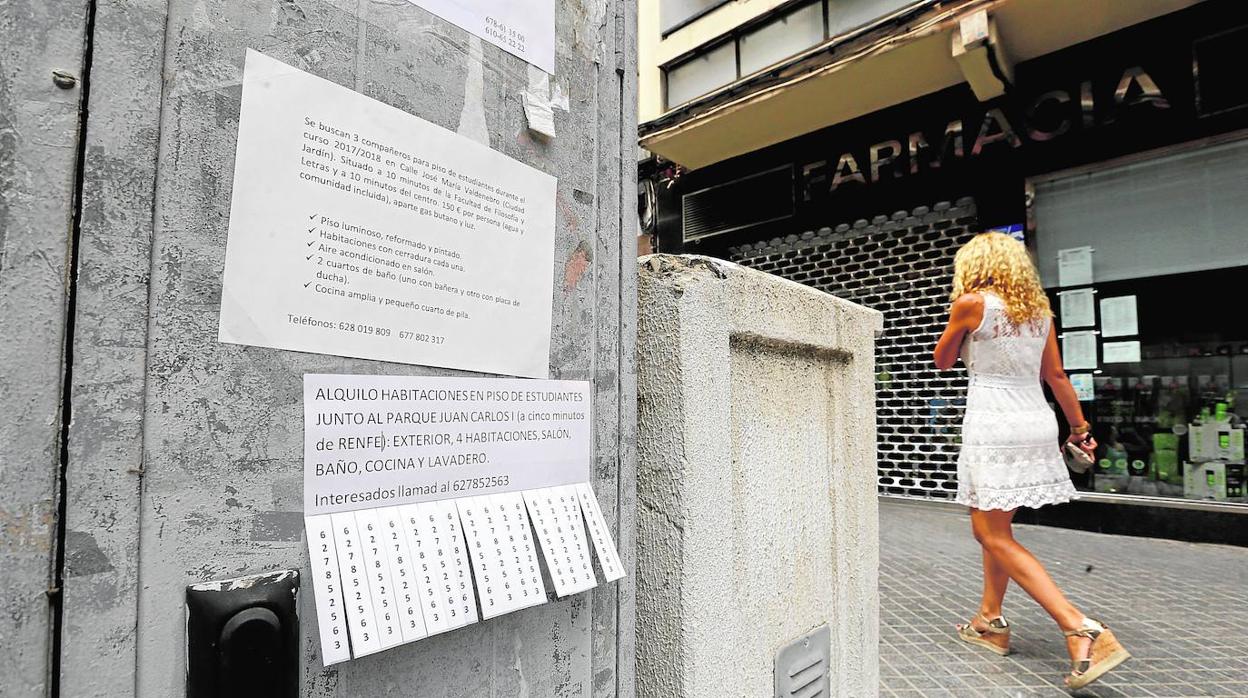 678-61 15 00
610-65 22 22
Se buscan 3 compañeros para piso de estudiantes durante el
curso 2017/2018 en Calle José María Valdenebro (Ciudad
Jardín). Situado a 10 minutos de la Facultad de Filosofía y
Letras y a 10 minutos del centro. 150 € por persona (agua y
comunidad incluida), aparte gas butano y luz.
✓ Piso luminoso, reformado y pintado.
✓ Habitaciones con cerradura cada una.
✓ Aire acondicionado en salón.
✓ 2 cuartos de baño (uno con bañera y otro con placa de
ducha).
✓ Cocina amplia y pequeño cuarto de pila.
Teléfonos: 628 019 809 677 802 317
ALQUILO HABITACIONES EN PISO DE ESTUDIANTES
JUNTO AL PARQUE JUAN CARLOS I (a cinco minutos
de RENFE): EXTERIOR, 4 HABITACIONES, SALÓN,
BAÑO, COCINA Y LAVADERO.
Interesados llamad al 627852563
627852563
627852563
627852563
627852563
627852563
627852563
627852563
627852563
627852563
627852563
627852563
627852563
FARMACIA
FARMACIA